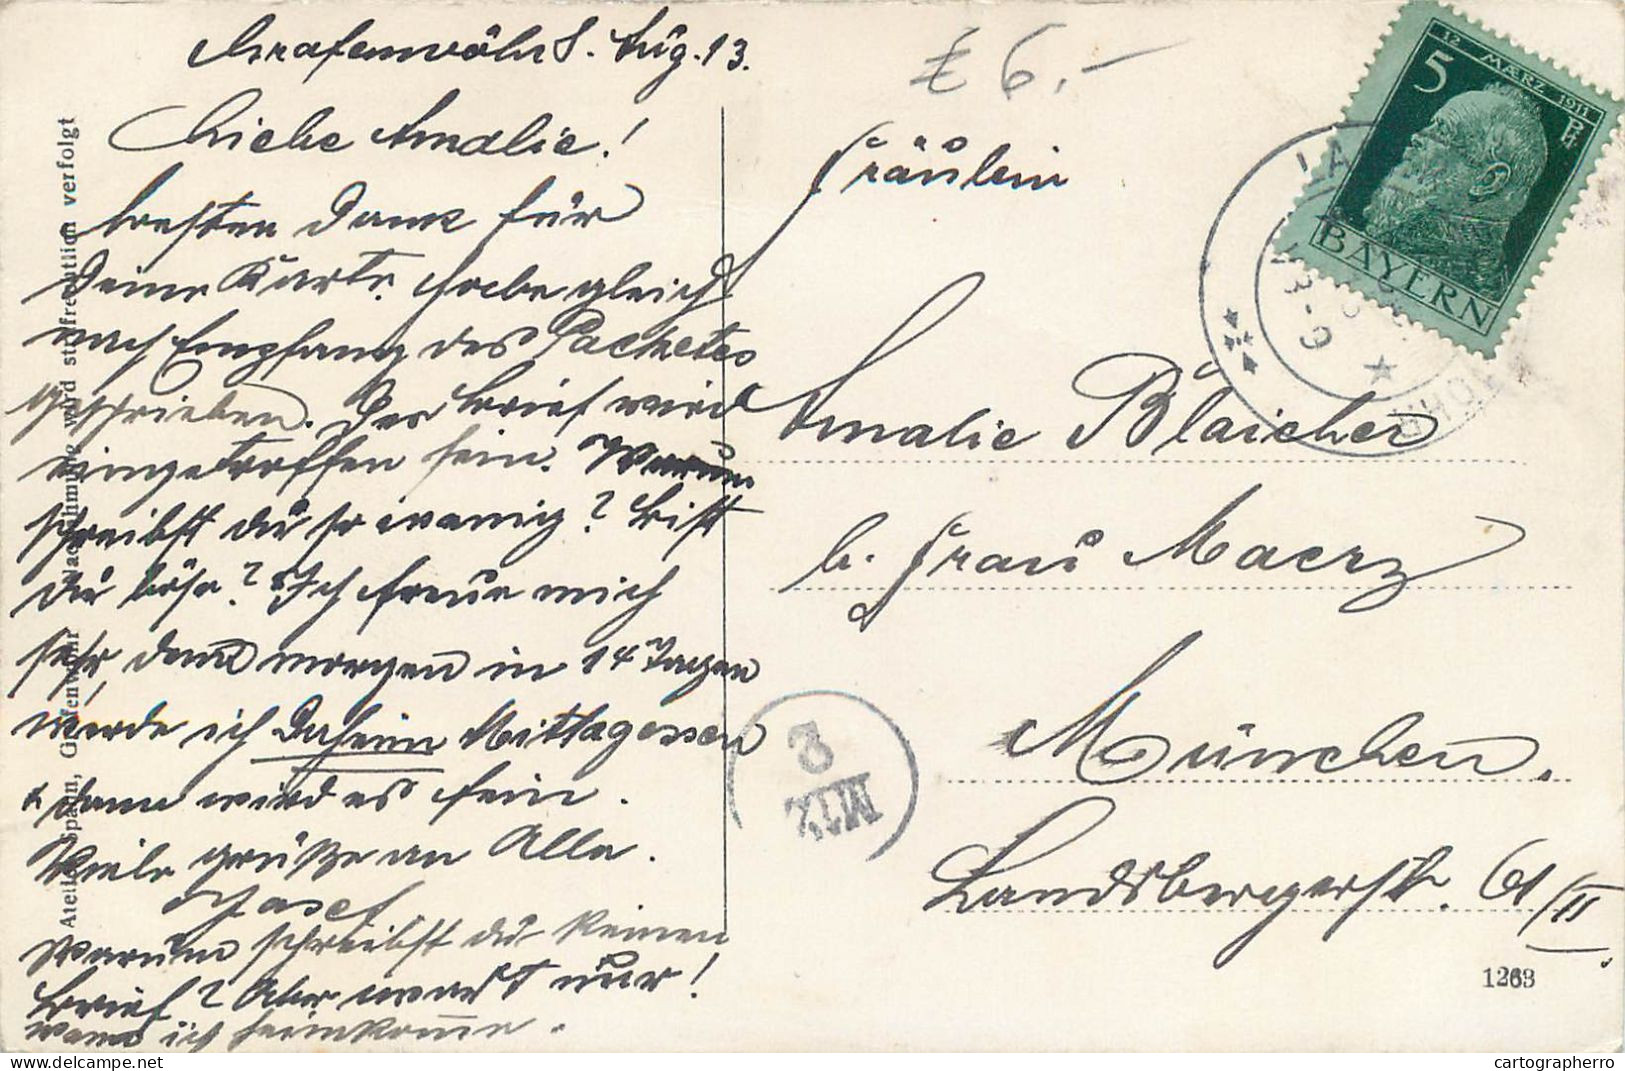 Grafenwöhr 8. Aug. 13.
Liebe Amalie!
besten Dank für
Deine Karte. Habe gleich
nach Empfang des Packetes
geschrieben. Der Brief wird
eingetroffen sein. Warum
schreibst du so wenig? Bist
Du böse? Ich freue mich
sehr, denn morgen in 14 Tagen
werde ich Daheim Mittagessen
& dann wird es fein.
Viele Grüße an Alle.
Josef
Warum schreibst du keinen
Brief? Aber wart nur!
wenn ich heimkomme.
Atelier Spahn, Grafenwöhr Nachahmung wird strafrechtlich verfolgt
£ 6.-
Fräulein
Amalie Blaicher
b. Frau Maerz
München.
Landsbergerstr. 61/II.
12 MÆRZ 1911
5 Pf
BAYERN
LA
8-9
2
MÜ
1263
cartographerro